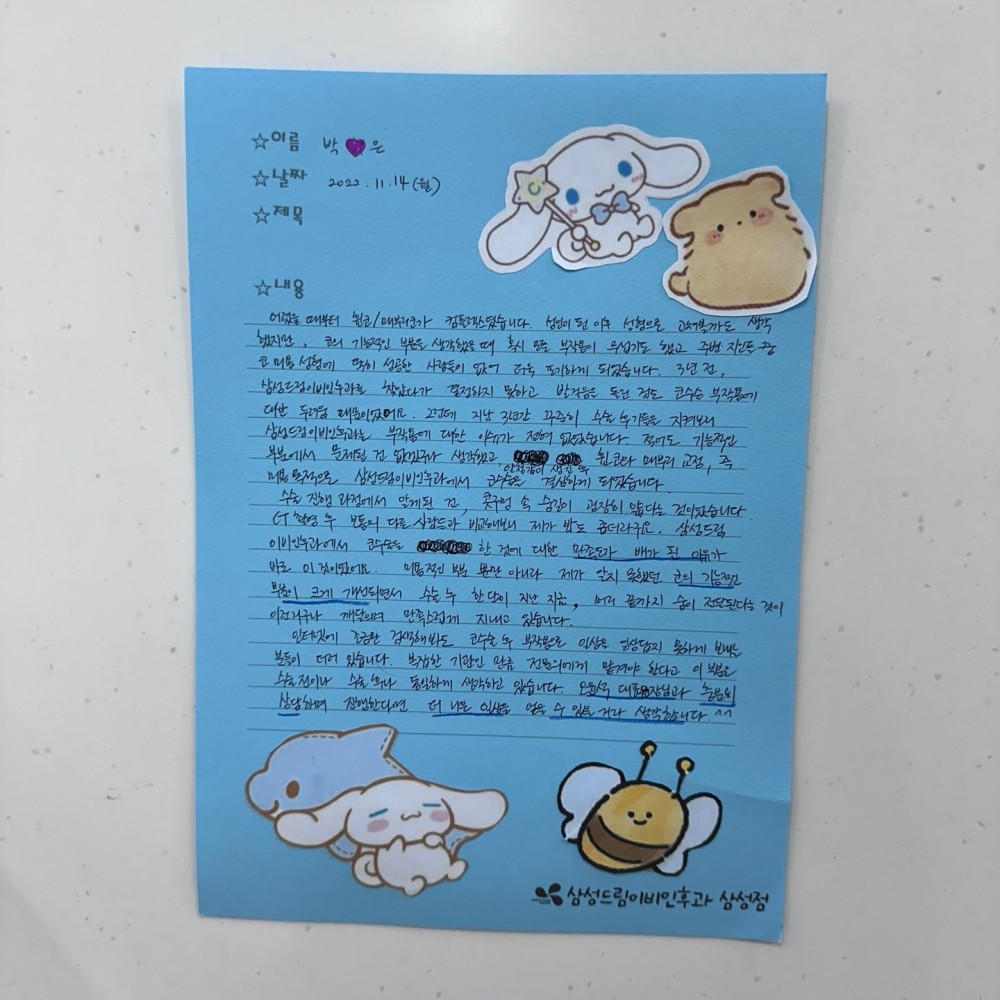 ☆이름 박 은
☆날짜 2022. 11. 14 (월)
☆제목
☆내용
어렸을 때부터 휜코/매부리코가 컴플렉스였습니다. 성인이 된 이후 성형으로 고쳐볼까도 생각
했지만, 코의 기능적인 부분을 생각했을 때 혹시 모를 부작용이 무섭기도 했고 주변 지인들 중
코 미용 성형에 딱히 성공한 사람들이 없어 더욱 포기하게 되었습니다. 3년 전,
삼성드림이비인후과를 찾았다가 결정하지 못하고 발걸음을 돌린 것도 코수술 부작용에
대한 두려움 때문이었어요. 그런데 지난 3년간 꾸준히 수술 후기들을 지켜보니
삼성드림이비인후과는 부작용에 대한 이슈가 전혀 없었습니다. 적어도 기능적인
부분에서 문제된 건 없겠구나 생각했고, 휜코와 매부리 교정, 즉
안정감이 생긴 후
미용 목적으로 삼성드림이비인후과에서 코수술을 결심하게 되었습니다.
수술 진행 과정에서 알게된 건, 콧구멍 속 숨길이 굉장히 좁다는 것이었습니다.
CT 촬영 후 보통의 다른 사람들과 비교해보니 제가 봐도 좁더라구요. 삼성드림
이비인후과에서 코수술을 한 것에 대한 만족도가 배가 된 이유가
바로 이것이었어요. 미용적인 부분 뿐만 아니라 제가 알지 못했던 코의 기능적인
부분이 크게 개선되면서 수술 후 한달이 지난 지금, 머리 끝까지 숨이 전달된다는 것이
이런거구나 깨달으며 만족스럽게 지내고 있습니다.
인터넷에 조금만 검색해봐도 코수술 후 부작용으로 일상을 일상답지 못하게 보내는
분들이 더러 있습니다. 복잡한 기관인 만큼 전문의에게 맡겨야 한다고 이 부분은
수술 전이나 수술 후나 동일하게 생각하고 있습니다. 대표원장님과 충분히
상담하며 진행한다면 더 나은 일상을 얻을 수 있을 거라 생각합니다. ^^
삼성드림이비인후과 삼성점